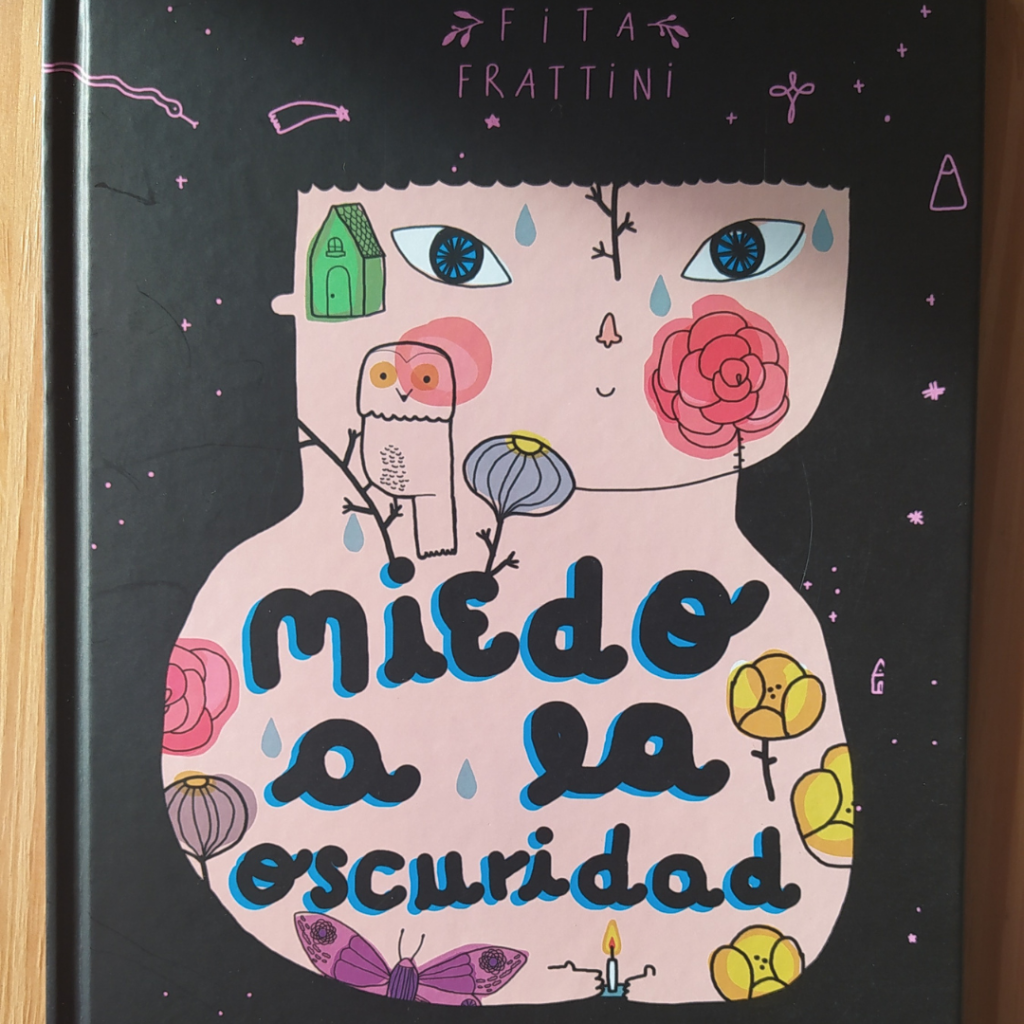 FiTA
FRATTiNi
miEdO
a la
oscuridad